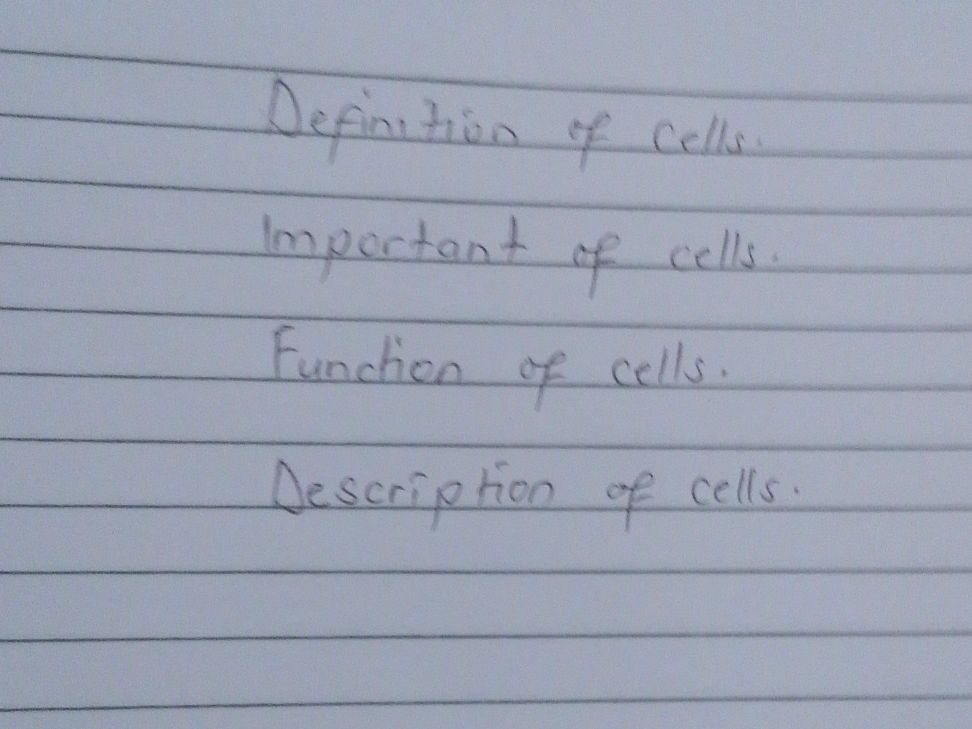 Definition of cells.
Important of cells.
Function of cells.
Description of cells.